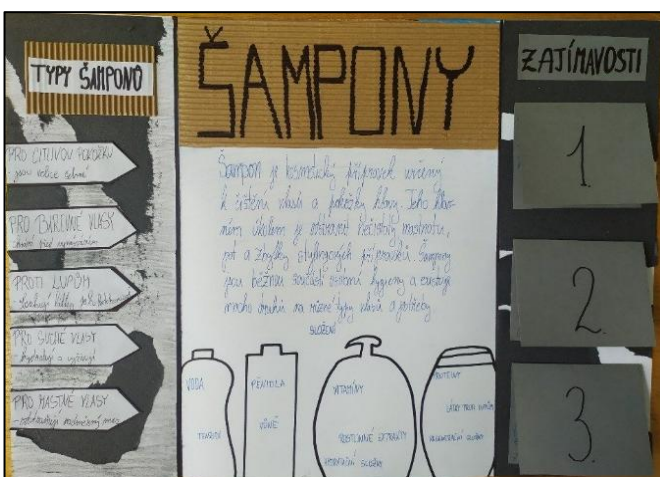 TYPY ŠAMPONŮ
PRO CITLIVOU POKOŽKU
- jsou velice jemné
PRO BARVENÉ VLASY
- chrání před vymýváním
PROTI LUPŮM
PRO SUCHÉ VLASY
- hydratují a vyživují
PRO MASTNÉ VLASY
- odstraňují nadměrný maz
ŠAMPONY
Šampon je kosmetický přípravek určený
k čištění vlasů a pokožky hlavy. Jeho hlav-
ním úkolem je odstranit nečistoty, mastnotu,
pot a zbytky stylingových přípravků. Šampony
jsou běžnou součástí osobní hygieny a existuje
mnoho druhů na různé typy vlasů a potřeby.
SLOŽENÍ
VODA
TENZIDY
PĚNIDLA
VŮNĚ
VITAMÍNY
ROSTLINNÉ EXTRAKTY
HYDRATAČNÍ SLOŽKY
PROTEINY
LÁTKY PROTI LUPŮM
REGENERAČNÍ SLOŽKY
ZAJÍMAVOSTI
1
2.
3.